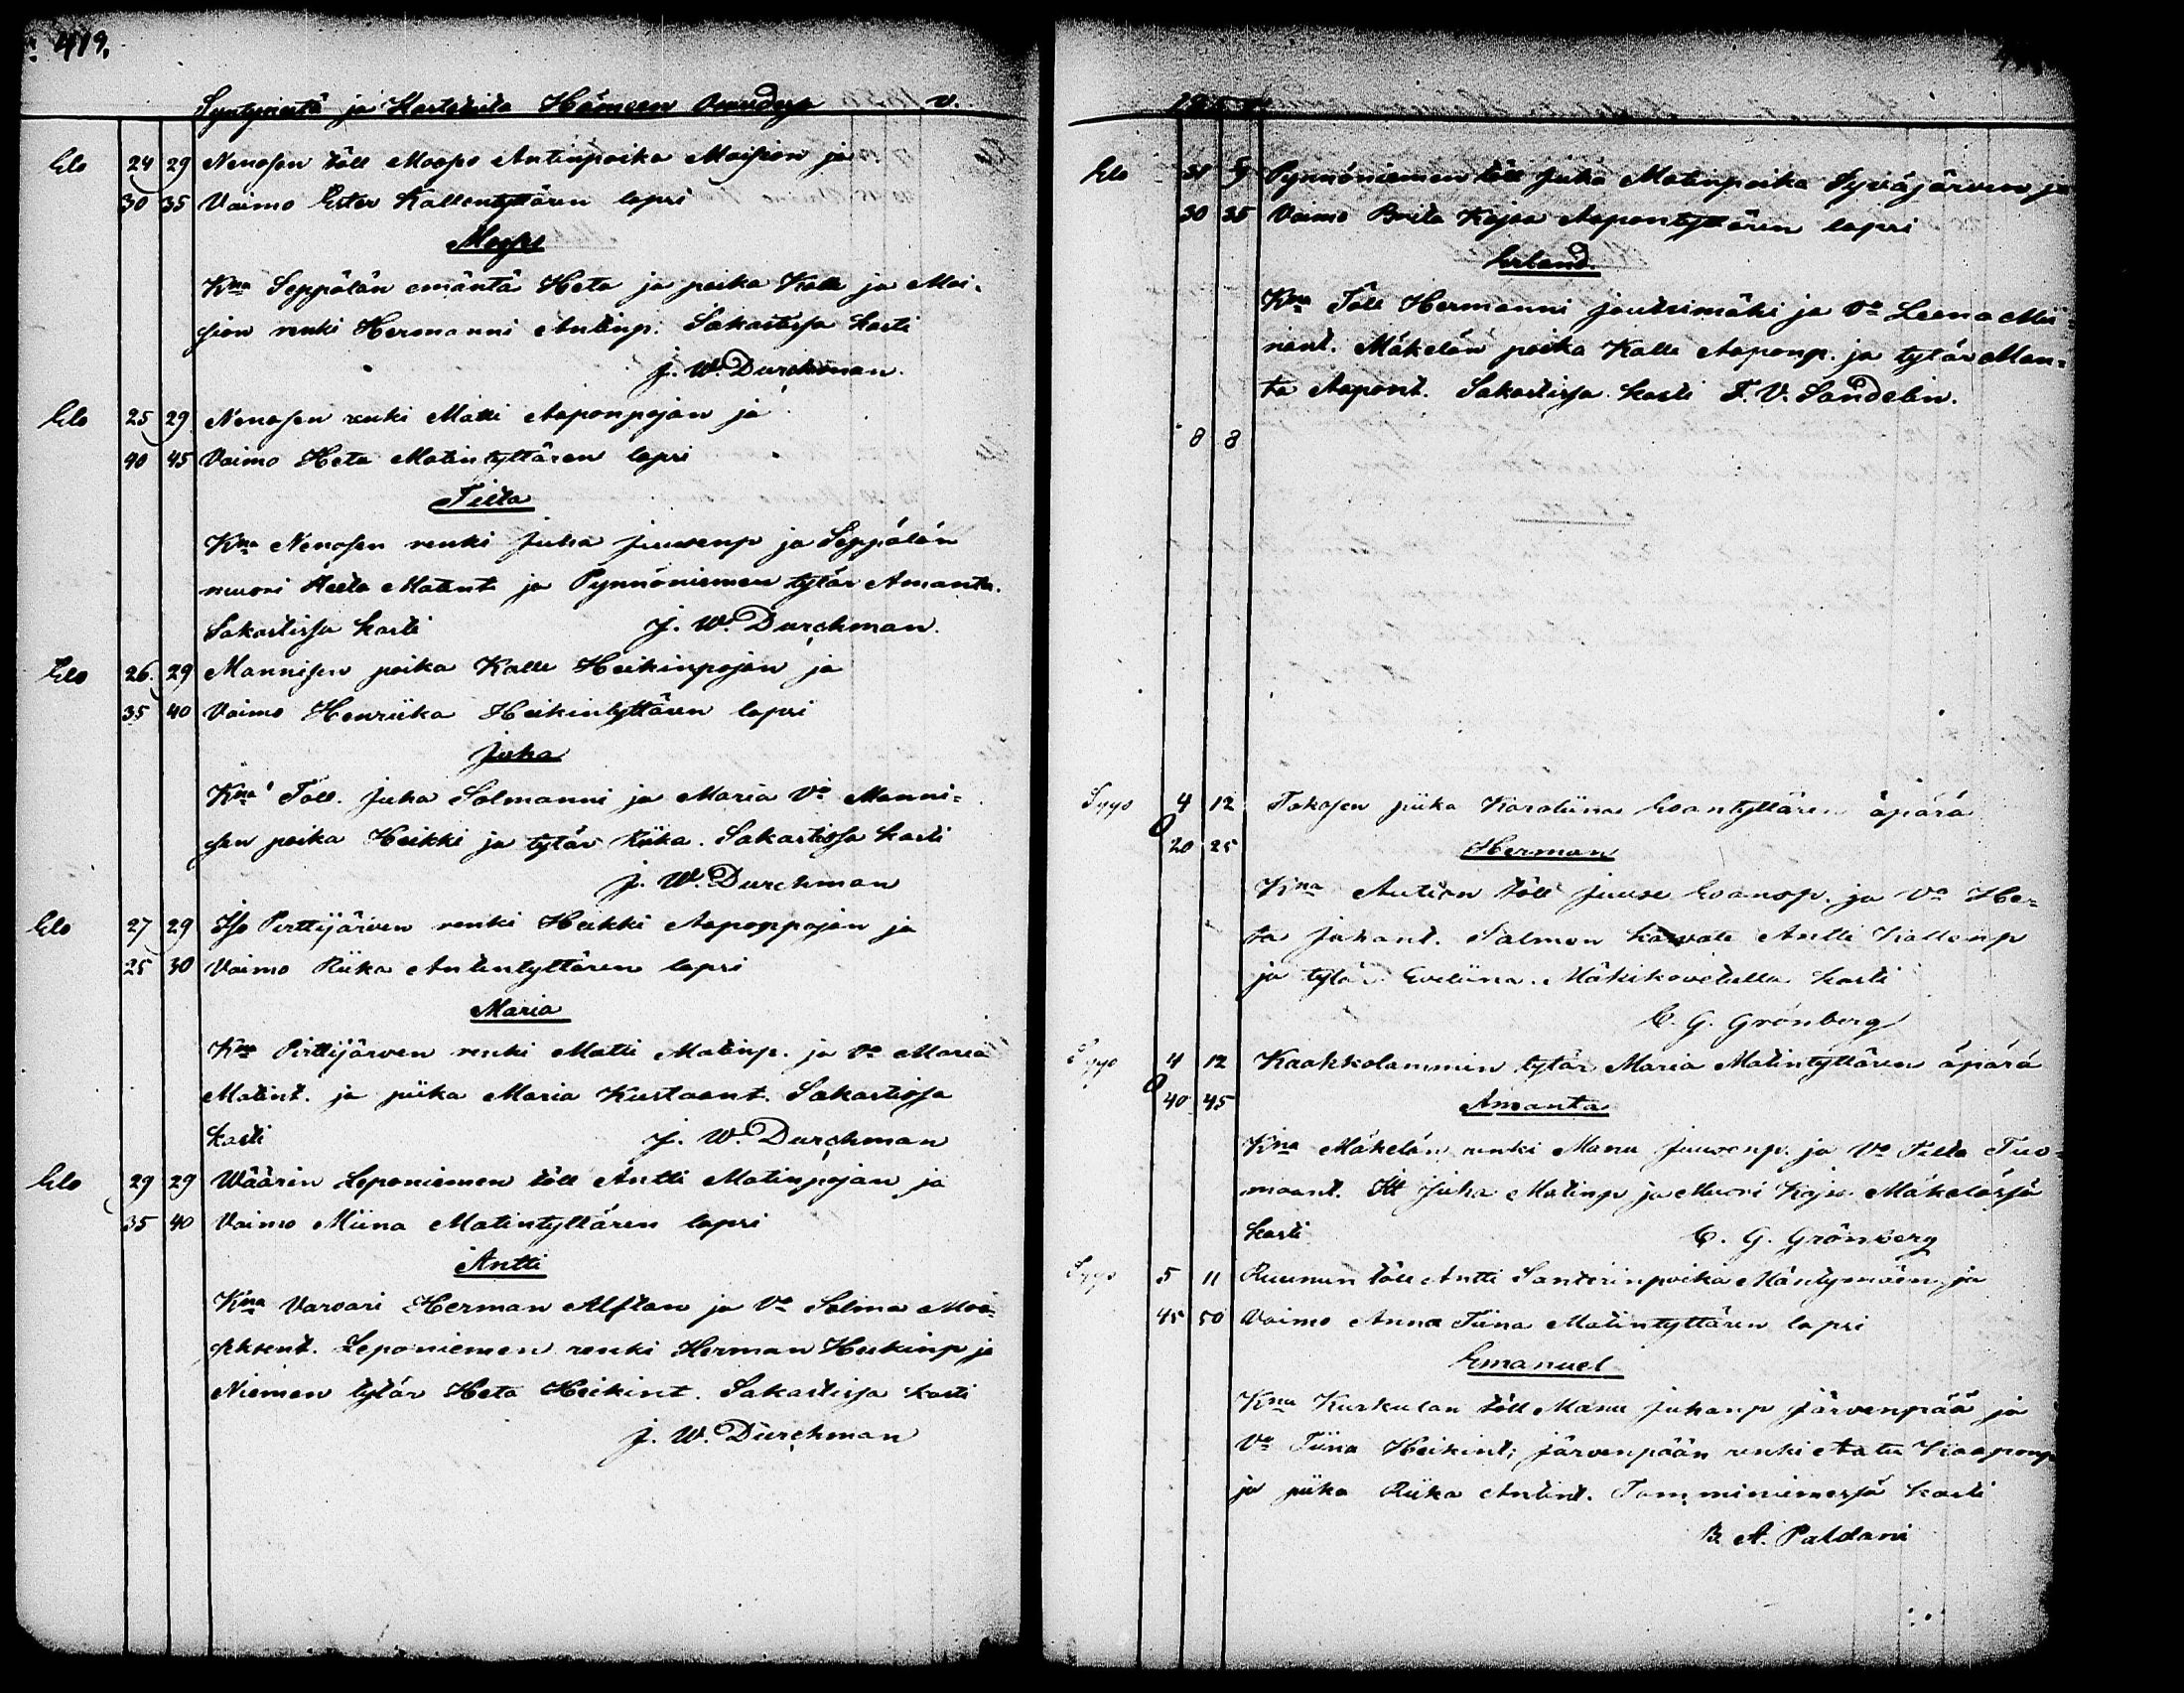 419.
Syntyneitä ja Kastetuita Hämeen v.
Elo 24 29 Nenosen töll Moosps Antinpoika Moision ja
30 35 Vaimo Ester Kallentyttären lapsi
Moses
Kna Seppälän emäntä Heta ja poika Kalle ja Moi-
sion renki Hermanni Antinp. Sakastissa kasti
J. W. Durchman.
Elo 25 29 Nenosen renki Matti Aaponpojan ja
40 45 Vaimo Heta Matintyttären lapsi
Tilta
Kna Nenosen renki Juha Juusenp ja Seppälän
muori Heta Matint ja Pynnöniemen tytär Amanta.
Sakastissa kasti J. W. Durchman.
Elo 26. 29 Mannisen poika Kalle Heikinpojan ja
35 40 Vaimo Henriika Heikintyttären lapsi
Juha
Kna Töll. Juha Salmanni ja Maria Vo Manni-
sen poika Heikki ja tytär Riika. Sakastissa kasti
J. W. Durchman
Elo 27 29 Iso Pirttijärven renki Heikki Aaponpojan ja
25 30 Vaimo Riika Antintyttären lapsi
Maria
Kna Pirttijärven renki Matti Matinp. ja Vo Maria
Matint. ja piika Maria Kustaant. Sakastissa
kasti J. W. Durchman
Elo 29 29 Wäärin Leponiemen töll Antti Matinpojan ja
35 40 Vaimo Miina Matintyttären lapsi
Antti
Kna Varvari Herman Alftan ja Vo Salma
Leponiemen renki Herman Heikinp ja
Niemen tytär Heta Heikint. Sakastissa kasti
J. W. Durchman
Elo 31 9 Pynnöniemen töll Juha Matinpoika Syväjärven ja
30 35 Vaimo Brita Kajsa Aapontyttären lapsi
Erland.
Kna Töll Hermanni Joutsimäki ja Vo Leena
Mäkelän poika Kalle Aaponp. ja tytär Man-
ta Aapont. Sakastissa kasti F. V. Sandelin.
8 8
Syys 4 12 Takasen piika Karoliina Eevantyttären äpärä
20 25 Herman
Kna Aution töll Juuse Eevansp. ja Vo He-
ta Juhant. Salmen Antti Kallenp
ja tytär Eveliina. Mäkikovetulla kasti
C. G. Grönberg
Syys 4 12 Kaakkolammin tytär Maria Matintyttären äpärä
40 45 Amanta
Kna Mäkelän renki Manu Juusenp. ja Vo Tilta Tuo-
maant. Itt Juha Matinp ja Muori Kajsa. Mäkelässä
kasti C. G. Grönberg
Syys 5 11 Ruunun töll Antti Santerinpoika Mäntymäen ja
45 50 Vaimo Anna Tiina Matintyttären lapsi
Emanuel
Kna Kurkulan töll Manu Juhanp Järvenpää ja
Vo Tiina Heikint; Järvenpään renki Aatu Kaaponp
ja piika Riika Antint. Tamminiemessä kasti
B. A. Paldani